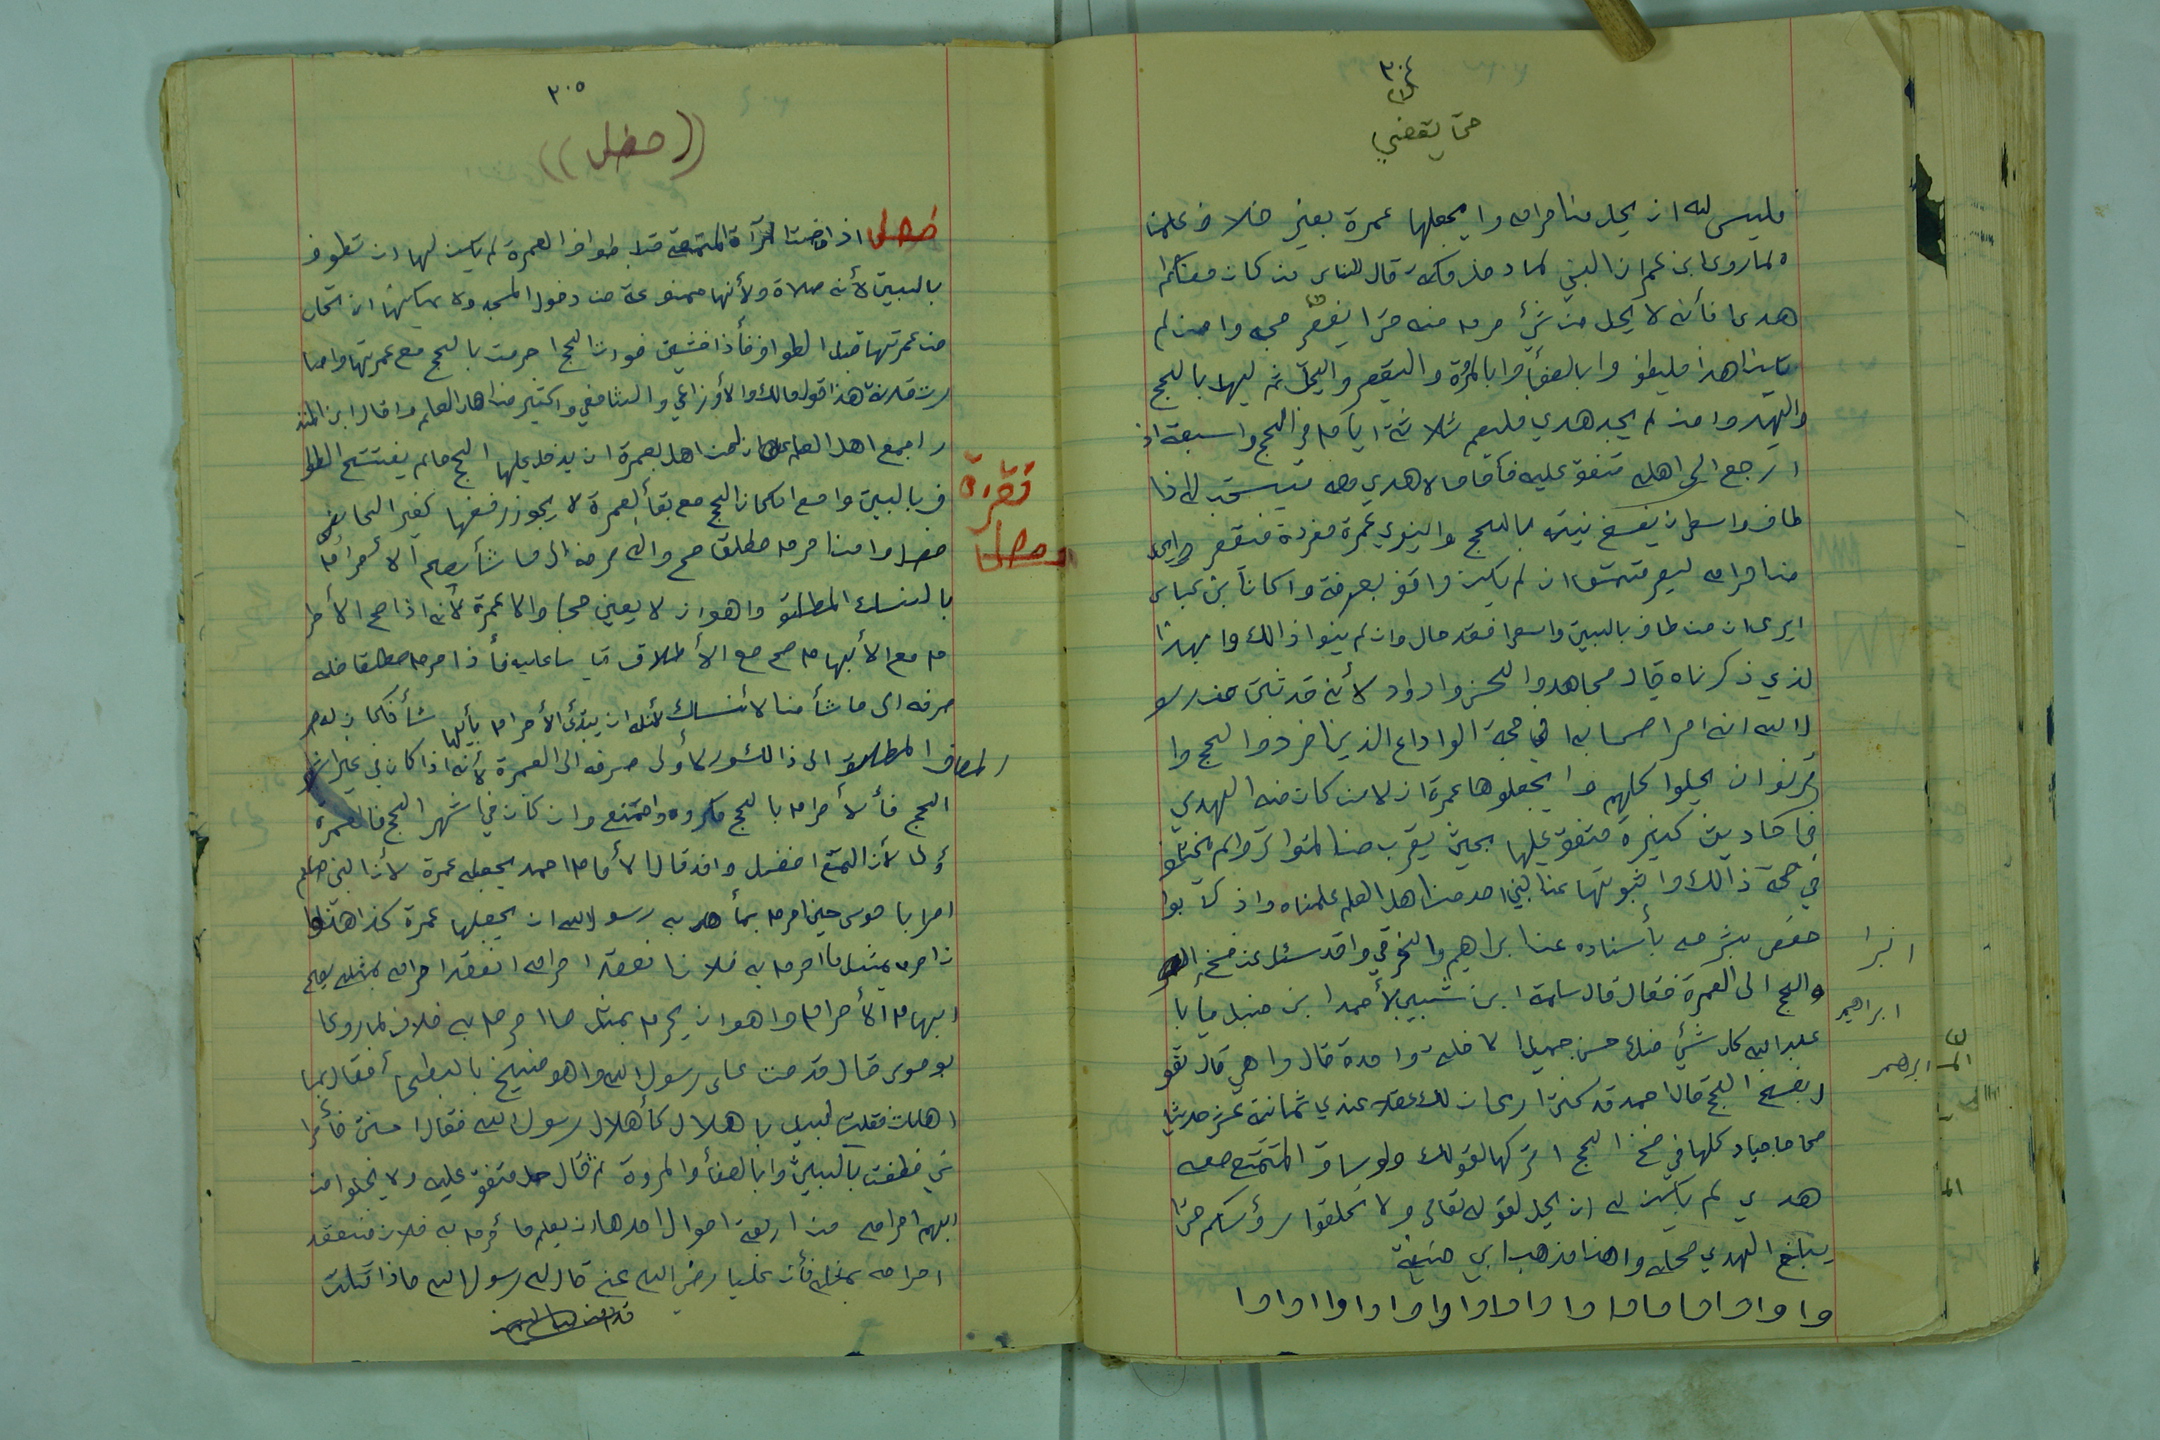 ٣٠٤
حتا يقضي
فليس له ان يحل من احرامه وا يجعلها عمرة بغير خلاف علمنا
لماروى ابن عمر ان النبي لما دخل مكة قال للناس من كان منكم
هدى فأنه لا يحل من شئ حرم منه حتا يقضي حجه وا من لم
يكن اهدا فليطف وا بالصفأ وا بالمروة واليقصر واليحل ثم ليهل بالحج
واليهد وا من لم يجد هدي فليصم ثلاثة ايام في الحج وا سبعة اذ
ا رجع الى اهله متفق عليه فأما لا هدي معه فيستحب له اذا
طاف وا سعا ان يفسخ نيته بالحج والينوي عمرة مفردة فيقصر وايحل
من احرامه ليصر متمتعا ان لم يكن واقف بعرفة وا كان ابن عباس
ايرى ان من طاف بالبيت وا سعا فقد حل وان لم ينوا ذالك وا بهذ
لذي ذكرناه قال مجاهد والحسن وا داود لأنه قد ثبت عن رسو
ل الله انه امر اصحابه في حجة الوا داع الذين افردوا الحج وا
قرنوا ان يحلوا كلهم وا يجعلوها عمرة ا لا من كان معه الهدي
في احاديث كثيرة متفق عليها بحيث يقرب من المتواتر والم يختلف
في صحة ذالك وا ثبوتها عن النبي احد من اهل العلم علمناه وا ذكر ابوا
حفص بأسناده عن ابراهيم والخرقي وا قد سئل عن فسخ
والحج الى العمرة فقال قال سلمة ابن شبيب لأحمد ابن حنبل يا با
عبد الله كل شئ منك حسن جميل الا خلة وا حدة قال وا هي قال تقو
ل بفسخ الحج قال احمد قد كنت ارى ان لك عقلا عندي ثمانية عشر حديثا
صحاحا جياد كلها في فسخ الحج اتركها لقولك ولو ساق المتمتع معه
هدي لم يكن له ان يحل لقوله تعالى ولا تحلقوا رؤسكم حتا
يبلغ الهدي محله وا هذا مذهب ابي حنيفة
ابرا
ابراهيم
ابرهيم
٣٠٥
((فصل))
فصل اذا حاضت المرآة المتمتعة قبل طواف العمرة لم يكن لها ان تطوف
بالبيت لأنه صلاة ولأنها ممنوعة من دخول المسجد ولا يمكنها ان تحل
من عمرتها قبل الطواف فأذا خشيت فوات الحج احرمت بالحج مع عمرتها وا صا
رت قارنة هذا قول مالك والأوزاعي والشافعي وا كثير من اهل العلم وا قال ابن المنذ
ر اجمع اهل العلم على ان لمن اهل بعمرة ان يدخل عليها الحج مالم يفتتح الطوا
ف بالبيت وا مع امكان الحج مع بقأ العمرة لا يجوز رفضها كغير الحائض
فصل وا من احرم مطلقا صح واله صرفه الى ما شأ يصح ألأحرام
بالنسك المطلق وا هو ان لا يعين حجا والا عمرة لأنه اذا صح الأحرا
م مع الأبهام صح مع الأطلاق قيا سا عليه فأذا احرم مطلقا فله
صرفه الى ما شأ من الأنساك لأنه له ان يبتدئ الأحرام بأيها شأ فكان له صر
المصاف المطلق الى ذالك والأولى صرفه الى العمرة لأنه اذا كان في غير اشهر
الحج فألأحرام بالحج مكروه وا ممتنع وا ن كان في اشهر الحج فالعمرة
أولا لأن التمتع افضل وا قد قال الأمام احمد يجعله عمرة لأن النبي صلعم
امر ابا موسى حين احرم بمأ اهل به رسول الله ان يجعلها عمرة كذا هنا
ن احرم بمثل ما احرم به فلان انعقد احرامه انعقد احرامه بمثله يصح
ابهام الأحرام وا هو ان يحرم بمثل ما احرم به فلان لما روى ا
بو موسى قال قدمت على رسول الله وا هو منيخ بالبطحأ فقال بما
اهللت فقلت لبيك باهلال كأهلال رسول الله فقال احسنت فأمر
ني فطفت بالبيت وا بالصفأ والمروة ثم قال حل متفق عليه ولا يخلوا من
ابهم احرامه من اربعة احوال احدها ان يعلم ما أحرم به فلان فينعقد
احرامه بمثله فأن عليا رضي الله عنه قال له رسول الله ماذا قلت